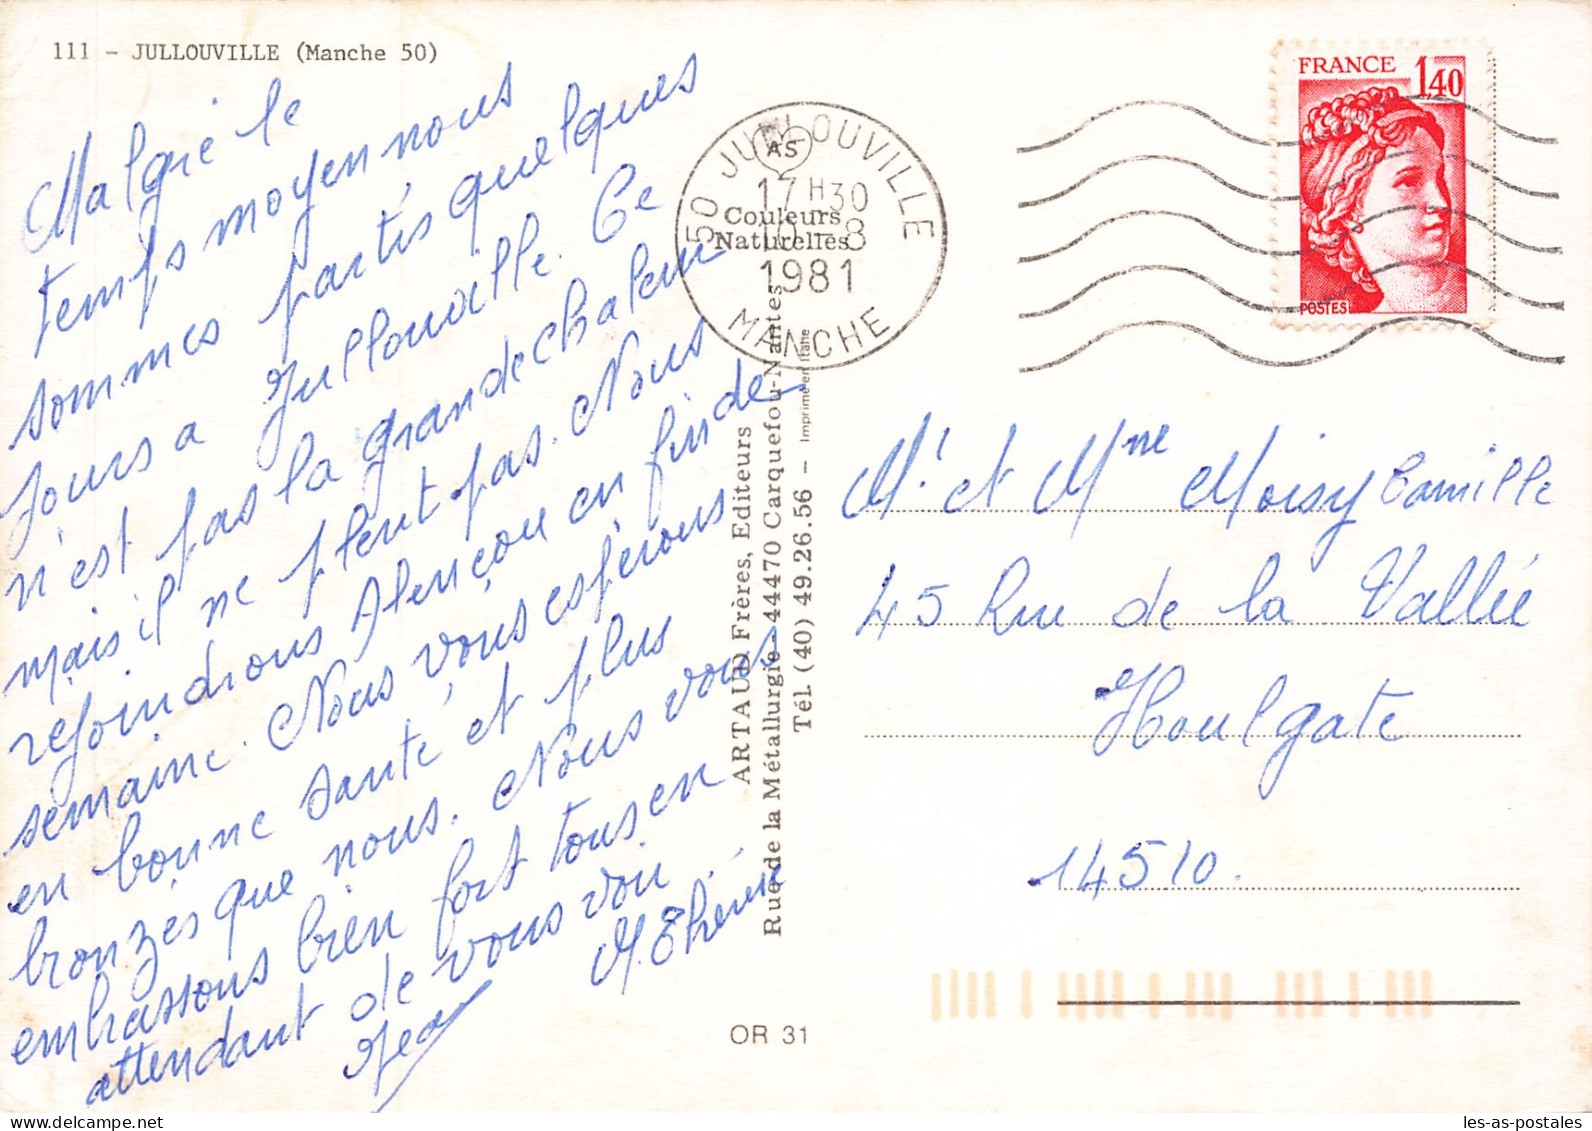 111 - JULLOUVILLE (Manche 50)
Malgré le
temps moyen nous
sommes partis quelques
jours a Jullouville. Ce
n'est pas la grande chaleur
mais il ne pleut pas. Nous
rejoindrons Alençon en fin de
semaine. Nous vous espérons
en bonne santé et plus
bronzés que nous. Nous vous
embrassons bien fort tous en
attendant de vous voir.
Jean
M. Thérèse
50 JULLOUVILLE
AS
17 H30
10 - 8
1981
MANCHE
Couleurs
Naturelles
ARTAUD Frères, Editeurs
Rue de la Métallurgie - 44470 Carquefou-Nantes
Tél. (40) 49.26.56 - Imprimé en Italie
OR 31
FRANCE 1,40
POSTES
Mr et Mme Moisy Camille
45 Rue de la Vallée
Houlgate
14510.
les-as-postales